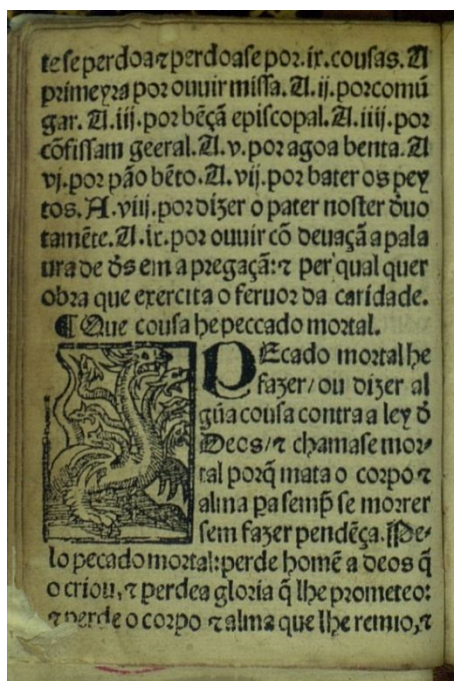 te se perdoa ⁊ perdoase por .ix. cousas. A
primeyra por ouuir missa. A .ij. por comũ
gar. A .iij. por bẽçã episcopal. A .iiij. por
cõfissam geeral. A .v. por agoa benta. A
vj. por pão bẽto. A .vij. por bater os pey
tos. A .viij. por dizer o pater noster deuo
tamẽte. A .ix. por ouuir cõ deuaçã a pala
ura de d̃s em a pregaçã: ⁊ per qual quer
obra que exercita o feruor da caridade.
¶ Que cousa he peccado mortal.
PEcado mortal he
fazer / ou dizer al
gũa cousa contra a ley d̃
Deos / ⁊ chamase mor⸗
tal porq̃ mata o corpo ⁊
alma pa semp̃ se morrer
sem fazer pendẽça. Pe⸗
lo pecado mortal: perde homẽ a deos q̃
o criou, ⁊ perde a gloria q̃ lhe prometeo:
⁊ perde o corpo ⁊ alma que lhe remio, ⁊